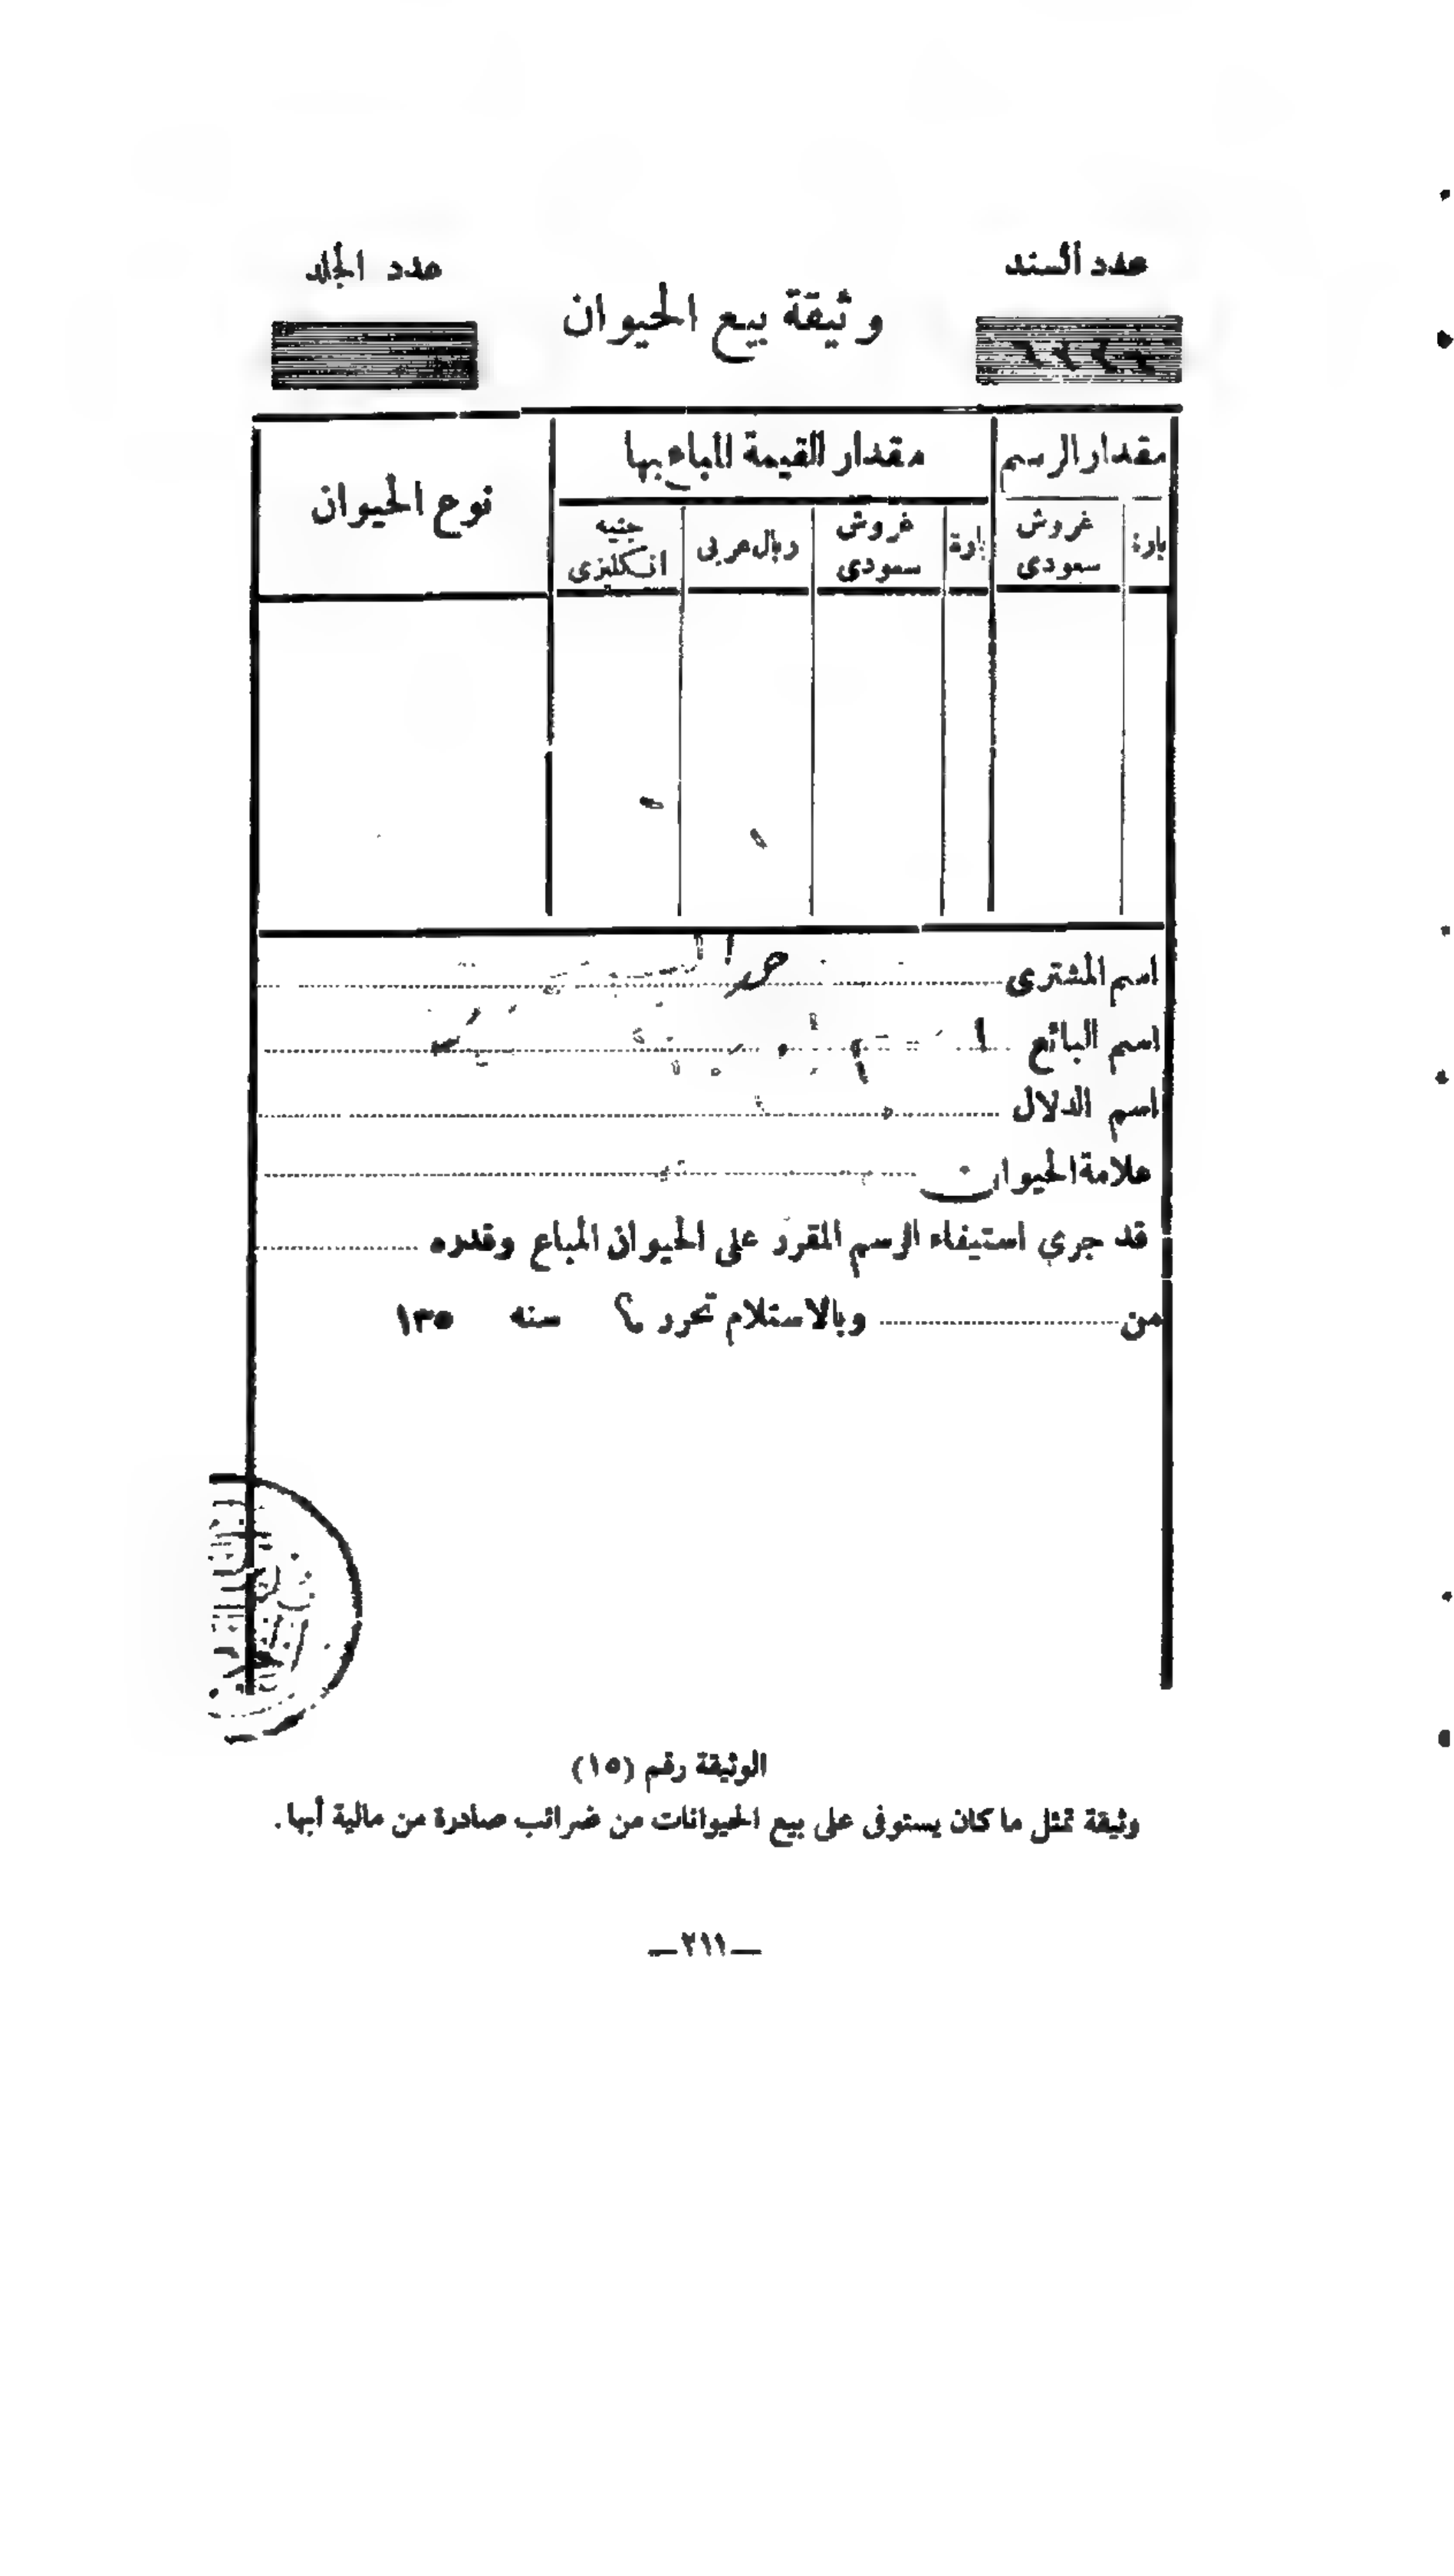 عدد السند
عدد الجلد
وثيقة بيع الحيوان
مقدار الرسم
مقدار القيمة المباع بها
نوع الحيوان
بارة
غروش سعودى
بارة
غروش سعودى
ريال عربى
جنيه انكليزى
اسم المشترى
اسم البائع
اسم الدلال
علامة الحيوان
قد جري استيفاء الرسم المقرر على الحيوان المباع وقدره
من وبالاستلام تحرر سنه ١٣٥
الوثيقة رقم (١٥)
وثيقة تمثل ما كان يستوفى على بيع الحيوانات من ضرائب صادرة من مالية أبها.
—٢١١—